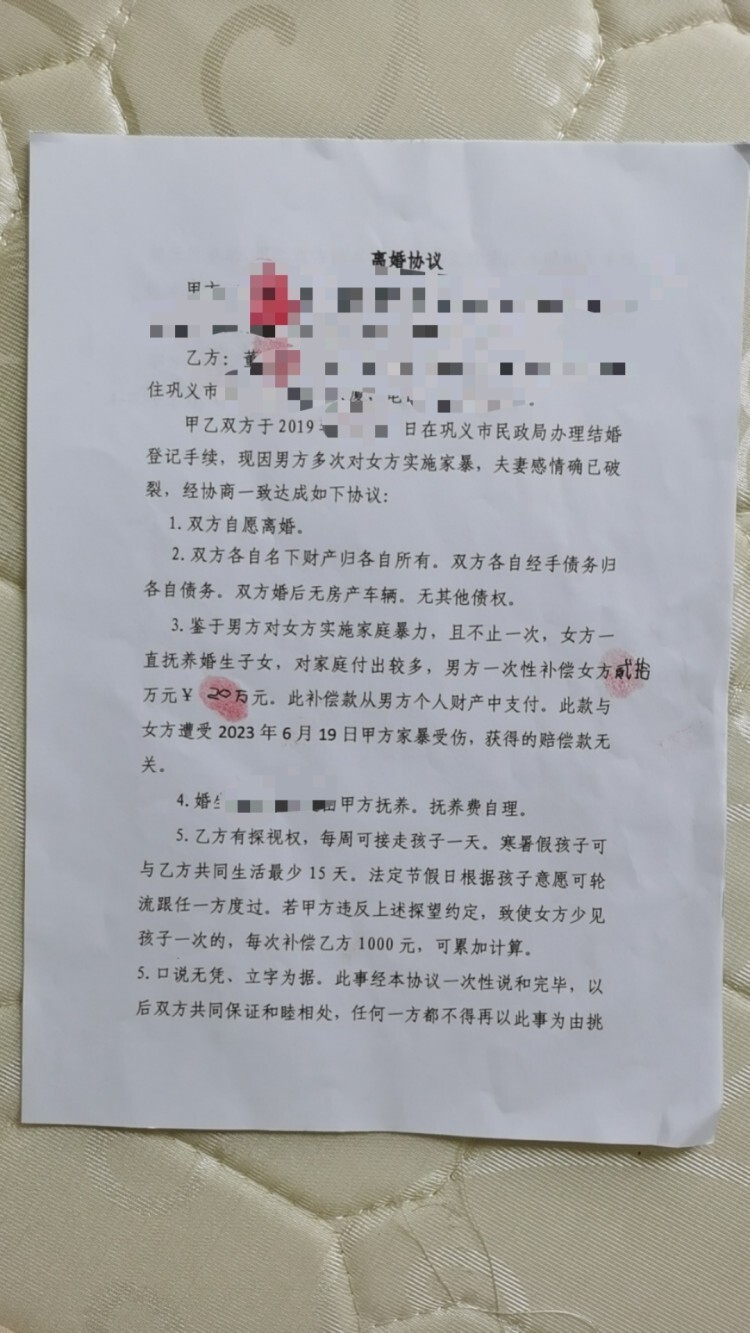 离婚协议
甲方
乙方：董
住巩义市
甲乙双方于 2019 日在巩义市民政局办理结婚
登记手续，现因男方多次对女方实施家暴，夫妻感情确已破
裂，经协商一致达成如下协议：
1. 双方自愿离婚。
2. 双方各自名下财产归各自所有。双方各自经手债务归
各自债务。双方婚后无房产车辆。无其他债权。
3. 鉴于男方对女方实施家庭暴力，且不止一次，女方一
直抚养婚生子女，对家庭付出较多，男方一次性补偿女方贰拾
万元￥ 20万元。此补偿款从男方个人财产中支付。此款与
女方遭受 2023 年 6 月 19 日甲方家暴受伤，获得的赔偿款无
关。
4. 婚生 甲方抚养。抚养费自理。
5. 乙方有探视权，每周可接走孩子一天。寒暑假孩子可
与乙方共同生活最少 15 天。法定节假日根据孩子意愿可轮
流跟任一方度过。若甲方违反上述探望约定，致使女方少见
孩子一次的，每次补偿乙方 1000 元，可累加计算。
5. 口说无凭、立字为据。此事经本协议一次性说和完毕，以
后双方共同保证和睦相处，任何一方都不得再以此事为由挑